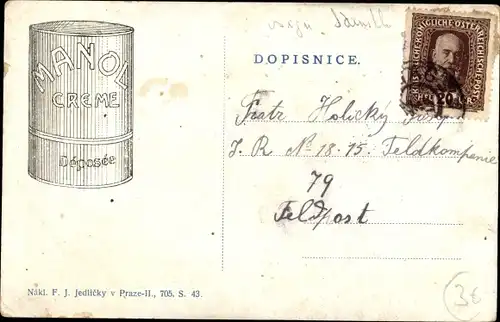 MANOL
CREME
Déposée
DOPISNICE.
KAISERLICHE KÖNIGLICHE ÖSTERREICHISCHE POST
20
Holický
I. R No 18. 15. Feldkompanie
79
Feldpost
Nákl. F. J. Jedličky v Praze-II., 705. S. 43.
3€